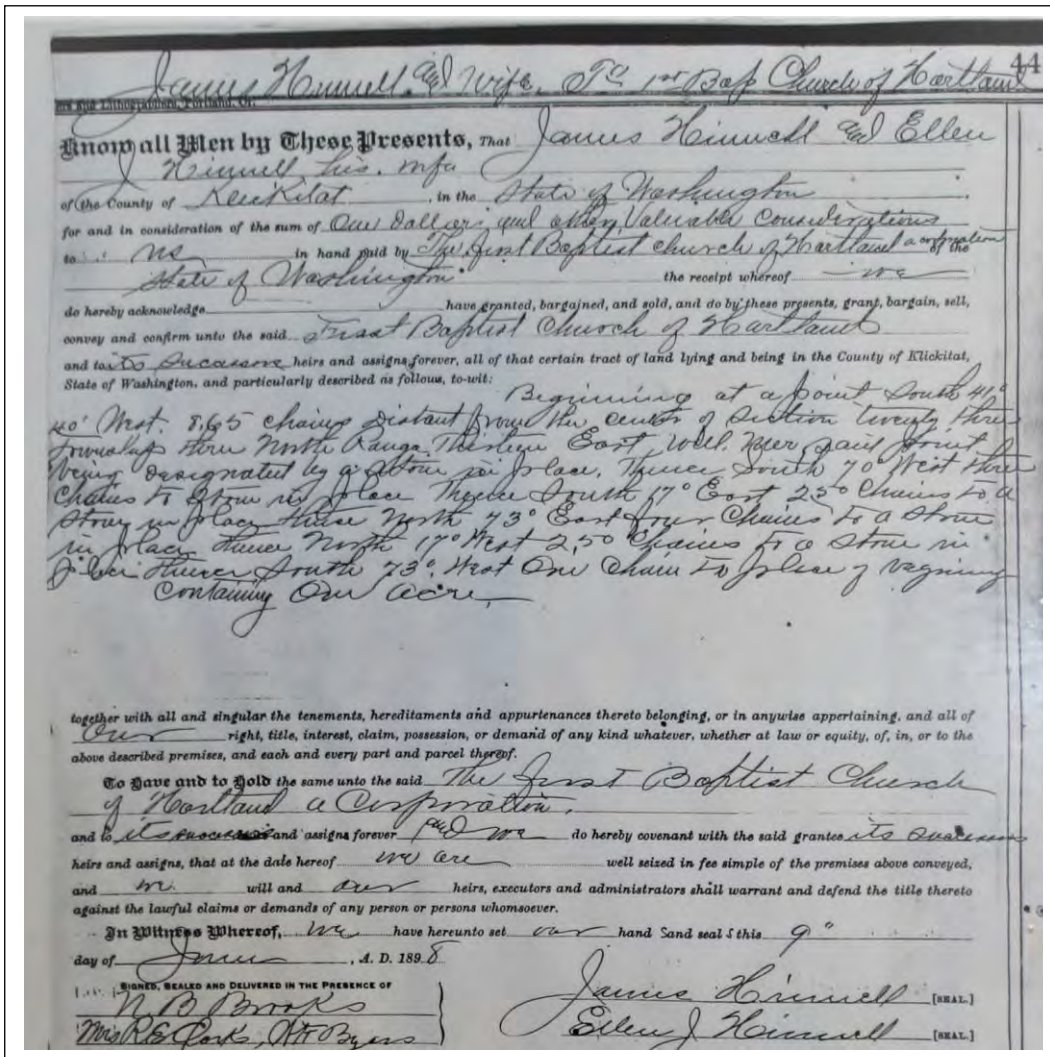 44
James Hinnell and Wife. To 1st Bap Church of Hartland
Know all Men by These Presents, That James Hinnell and Ellen
J Hinnell his wife
of the County of Klickitat, in the State of Washington
for and in consideration of the sum of One Dollar and other Valuable Considerations
to us in hand paid by The First Baptist church of Hartland a corporation of the
State of Washington the receipt whereof we
do hereby acknowledge have granted, bargained, and sold, and do by these presents, grant, bargain, sell,
convey and confirm unto the said First Baptist Church of Hartland
and to its heirs and assigns forever, all of that certain tract of land lying and being in the County of Klickitat,
State of Washington, and particularly described as follows, to-wit:
Beginning at a point South 41°
40' West. 8.65 chains distant from the center of Section twenty three
Township three North Range Thirteen East Will. Mer, said point
being designated by a Stone in place. Thence South 70° West three
Chains to Stone in place Thence South 17° East 2.50 Chains to a
Stone in place thence North 73° East four Chains to a Stone
in place thence North 17° West 2,50 Chains to a Stone in
place thence South 73° West One Chain to place of begining
Containing One acre
together with all and singular the tenements, hereditaments and appurtenances thereto belonging, or in anywise appertaining, and all of
Our right, title, interest, claim, possession, or demand of any kind whatever, whether at law or equity, of, in, or to the
above described premises, and each and every part and parcel thereof.
To Have and to Hold the same unto the said The First Baptist Church
of Hartland a Corporation.
and to its and assigns forever and we do hereby covenant with the said grantee its
heirs and assigns, that at the date hereof we are well seized in fee simple of the premises above conveyed,
and we will and our heirs, executors and administrators shall warrant and defend the title thereto
against the lawful claims or demands of any person or persons whomsoever.
In Witness Whereof, We have hereunto set our hand S and seal S this 9"
day of June, A. D. 1898
SIGNED, SEALED AND DELIVERED IN THE PRESENCE OF
N B Brooks James Hinnell [SEAL.]
Mrs R E Byers Ellen J Hinnell [SEAL.]